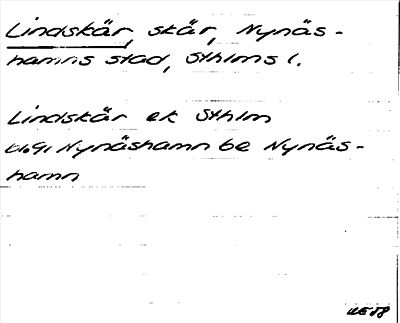 Lindskär, skär, Nynäs-
hamns stad, Sthlms l.
Lindskär ek Sthlm
Nynäshamn be Nynäs-
hamn